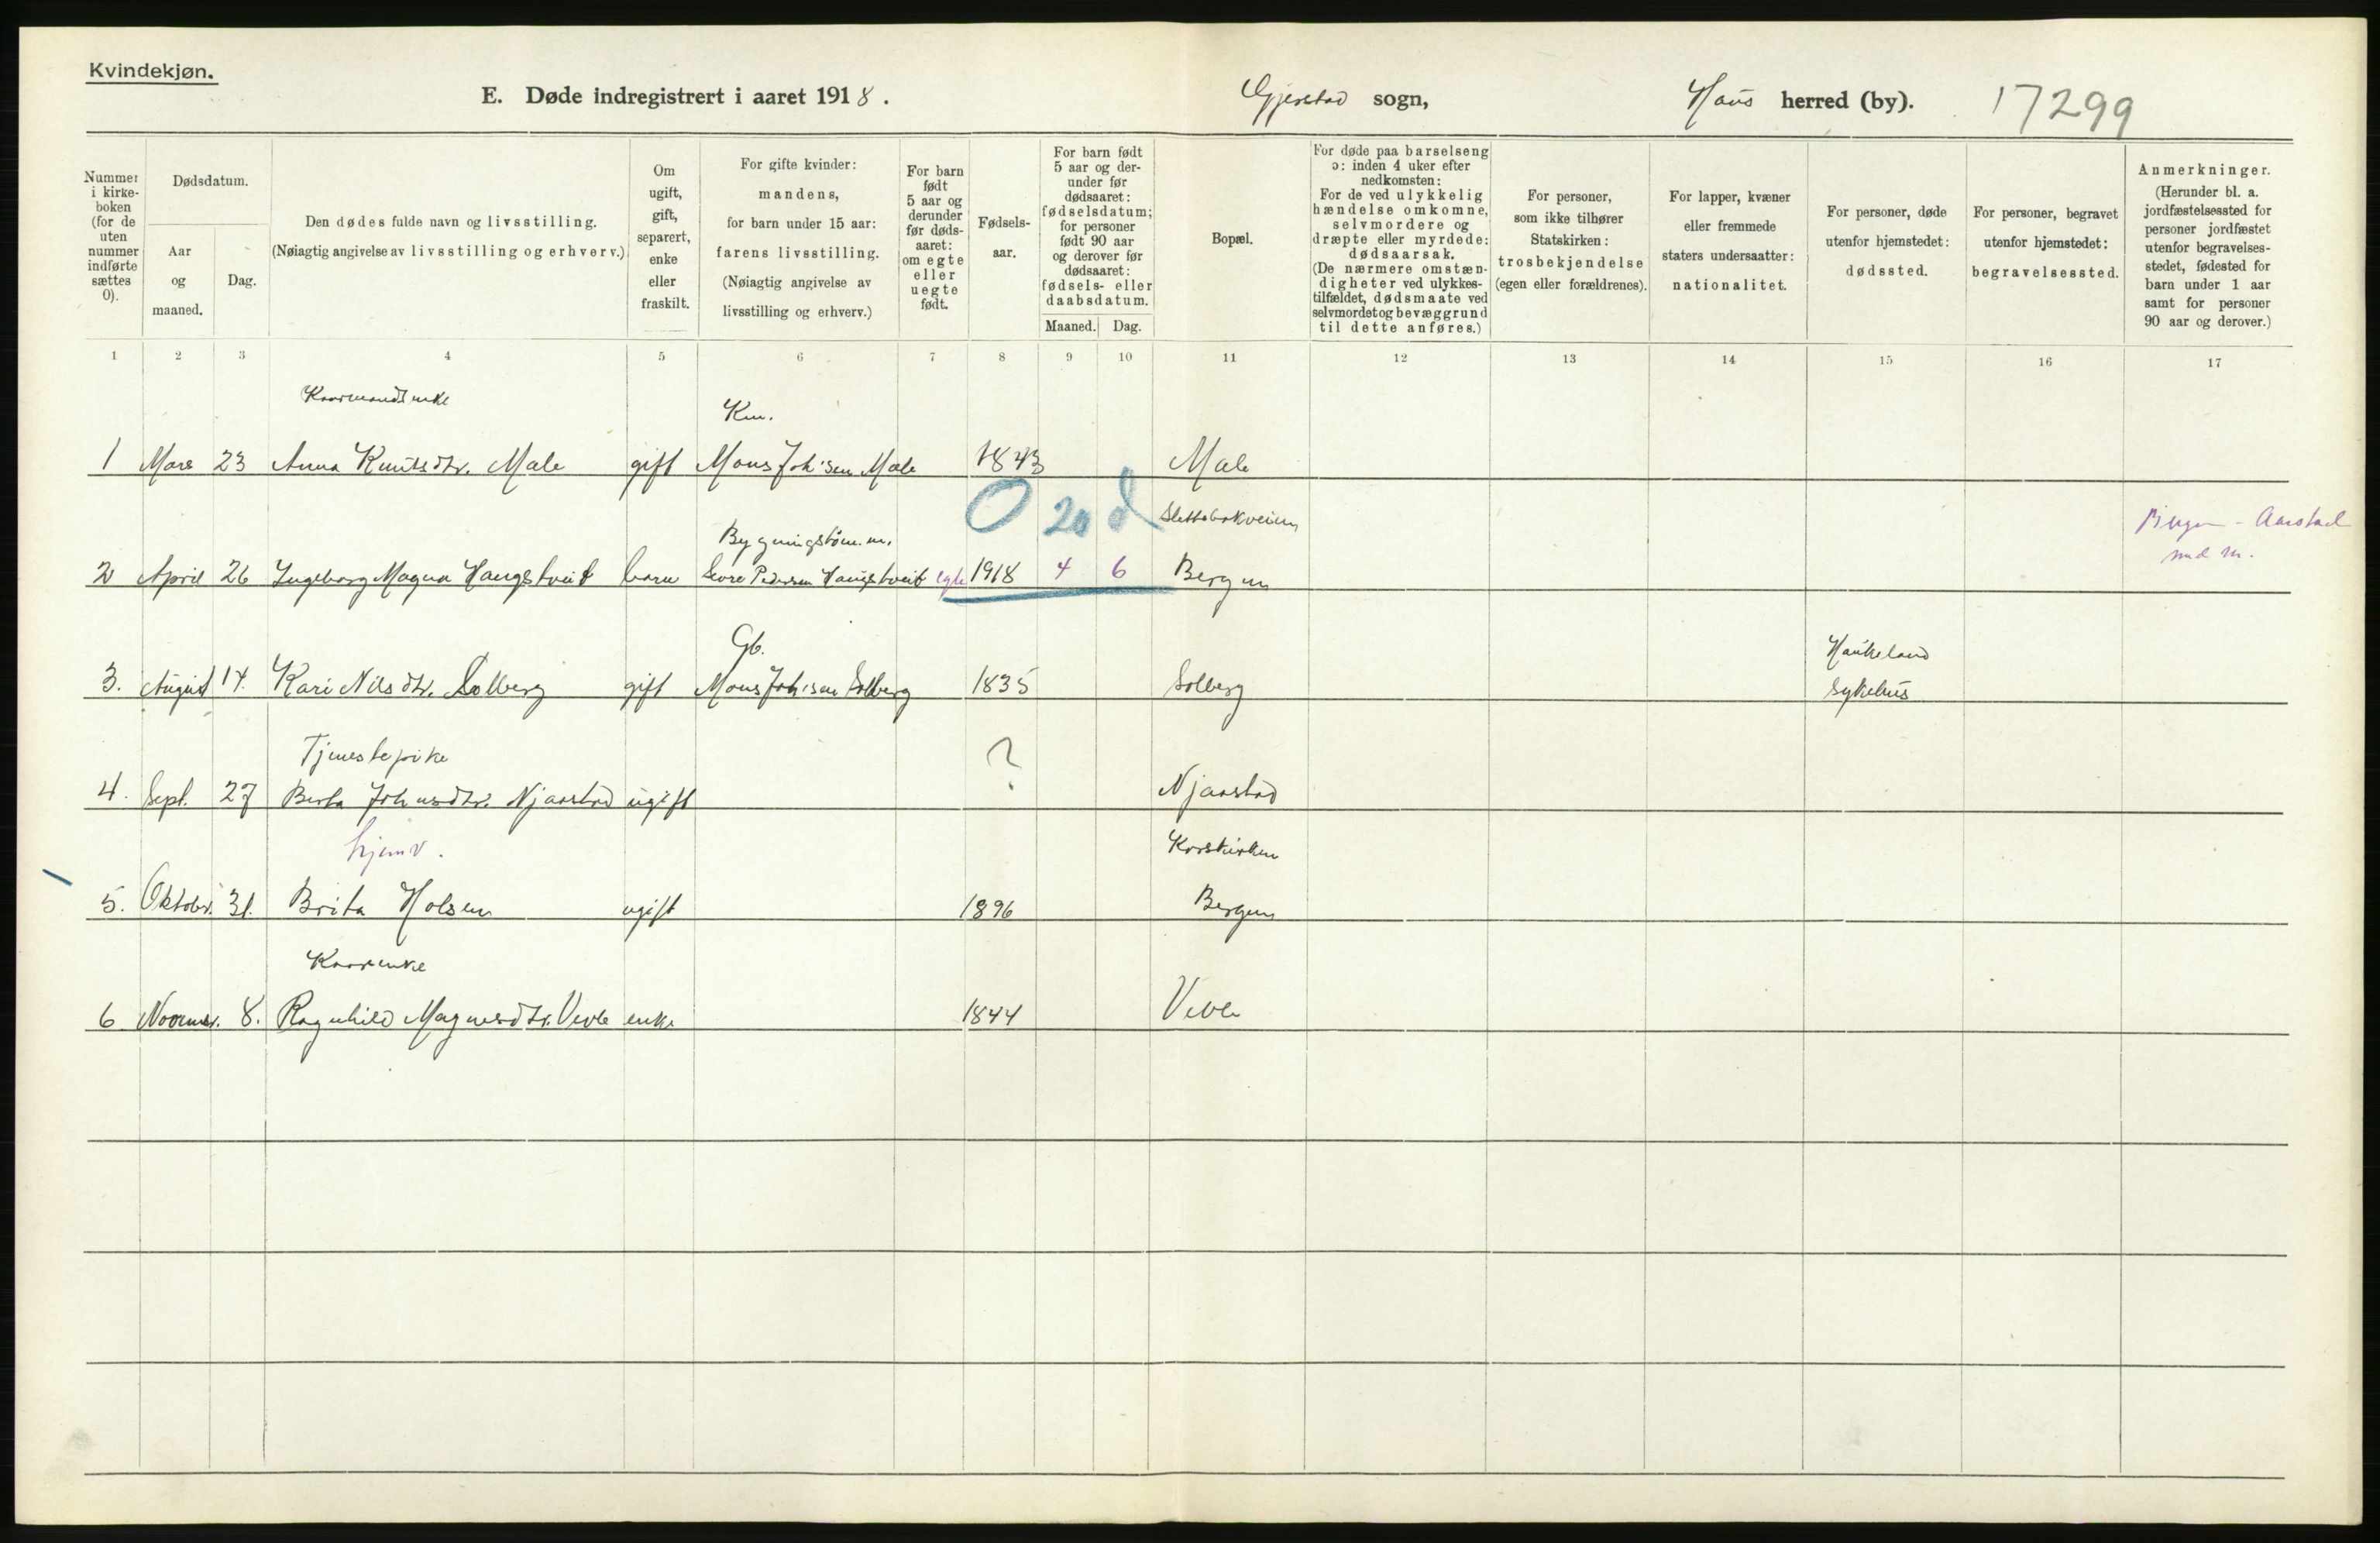 Kvindekjøn.
E. Døde indregistrert i aaret 1918.
Gjerstad sogn,
Haus herred (by).
17299
Nummer i kirkeboken (for de uten nummer indførte sættes 0).
Dødsdatum.
Aar og maaned.
Dag.
Den dødes fulde navn og livsstilling.
(Nøiagtig angivelse av livsstilling og erhverv.)
Om ugift, gift, separert, enke eller fraskilt.
For gifte kvinder: mandens, for barn under 15 aar: farens livsstilling.
(Nøiagtig angivelse av livsstilling og erhverv.)
For barn født 5 aar og derunder før dødsaaret: om egte eller uegte født.
Fødselsaar.
For barn født 5 aar og derunder før dødsaaret: fødselsdatum; for personer født 90 aar og derover før dødsaaret: fødsels- eller daabsdatum.
Maaned. Dag.
Bopæl.
For døde paa barselseng ɔ: inden 4 uker efter nedkomsten:
For de ved ulykkelig hændelse omkomne, selvmordere og dræpte eller myrdede: dødsaarsak.
(De nærmere omstændigheter ved ulykkestilfældet, dødsmaate ved selvmordet og bevæggrund til dette anføres.)
For personer, som ikke tilhører Statskirken: trosbekjendelse (egen eller forældrenes).
For lapper, kvæner eller fremmede staters undersaatter: nationalitet.
For personer, døde utenfor hjemstedet: dødssted.
For personer, begravet utenfor hjemstedet: begravelsessted.
Anmerkninger.
(Herunder bl. a. jordfæstelsessted for personer jordfæstet utenfor begravelsesstedet, fødested for barn under 1 aar samt for personer 90 aar og derover.)
1 2 3 4 5 6 7 8 9 10 11 12 13 14 15 16 17
Kaarmandsenke
Km.
1 Mars 23 Anna Knutsdtr. Male gift Mons Joh'sen Male 1843 Male
0 20 d
Slettebakveien
Bygningstøm.m.
Bergen - Aarstad
2 April 26 Ingeborg Magna Haugstveit barn Sevre Pedersen Haugstveit egte 1918 4 6 Bergen
Gb.
Haukeland
3. August 14. Kari Nilsdtr. Solberg gift Mons Joh'sen Solberg 1835 Solberg Sykehus
Tjenestepike
?
4. Sept. 27 Berta Johnsdtr. Njaastad ugift Njaastad
hjemv.
Korskirken
5. Oktober. 31. Brita Holsen ugift 1896 Bergen
Kaarenke
6 Novembr. 8. Ragnhild Magnesdtr. Vevle enke 1844 Vevle